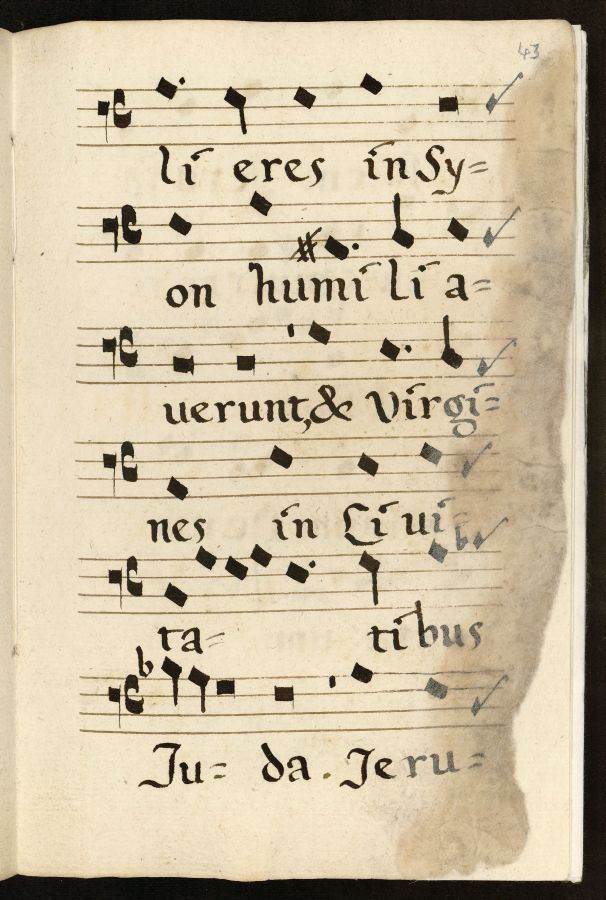 43
li eres in Sy=
on humi li a=
uerunt, & Virgi=
nes in Ci ui
ta= tibus
Ju= da. Jeru=